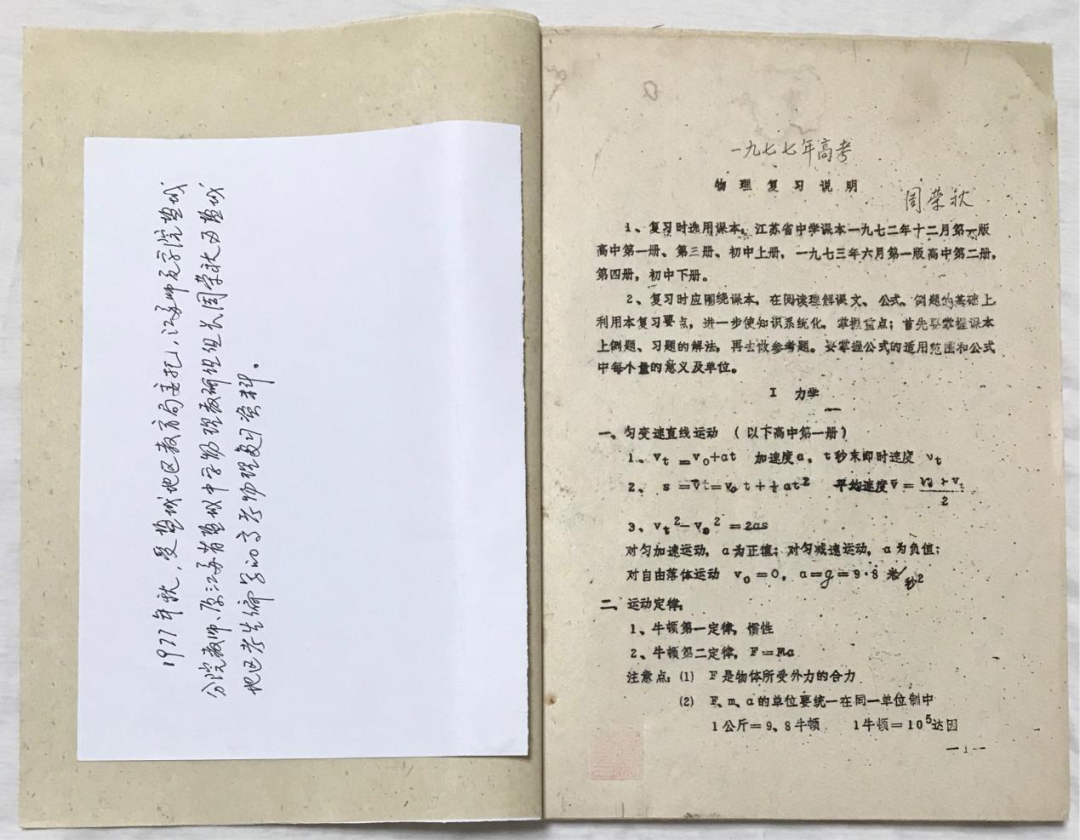 1977年秋，受盐城地区教育局委托，江苏师范学院盐城
分院教师、原江苏省盐城中学物理教研组组长周荣秋为盐城
地区考生编写的高考物理复习资料。
一九七七年高考
物理复习说明
周荣秋
1、复习时选用课本，江苏省中学课本一九七二年十二月第一版
高中第一册、第三册、初中上册，一九七三年六月第一版高中第二册，
第四册，初中下册。
2、复习时应围绕课本，在阅读理解课文、公式、例题的基础上
利用本复习要点，进一步使知识系统化，掌握重点；首先要掌握课本
上例题、习题的解法，再去做参考题。要掌握公式的适用范围和公式
中每个量的意义及单位。
I 力学
一、匀变速直线运动（以下高中第一册）
1、vt＝v0+at 加速度a，t秒末即时速度 vt
2、s＝v̄t＝v0t+½at² 平均速度v̄＝(v0+vt)/2
3、vt²－v0²＝2as
对匀加速运动，a为正值；对匀减速运动，a为负值；
对自由落体运动 v0＝0，a＝g＝9·8米/秒²
二、运动定律：
1、牛顿第一定律，惯性
2、牛顿第二定律，F＝ma
注意点：(1) F是物体所受外力的合力
(2) F、m、a的单位要统一在同一单位制中
1公斤＝9、8牛顿 1牛顿＝10⁵达因
—1—